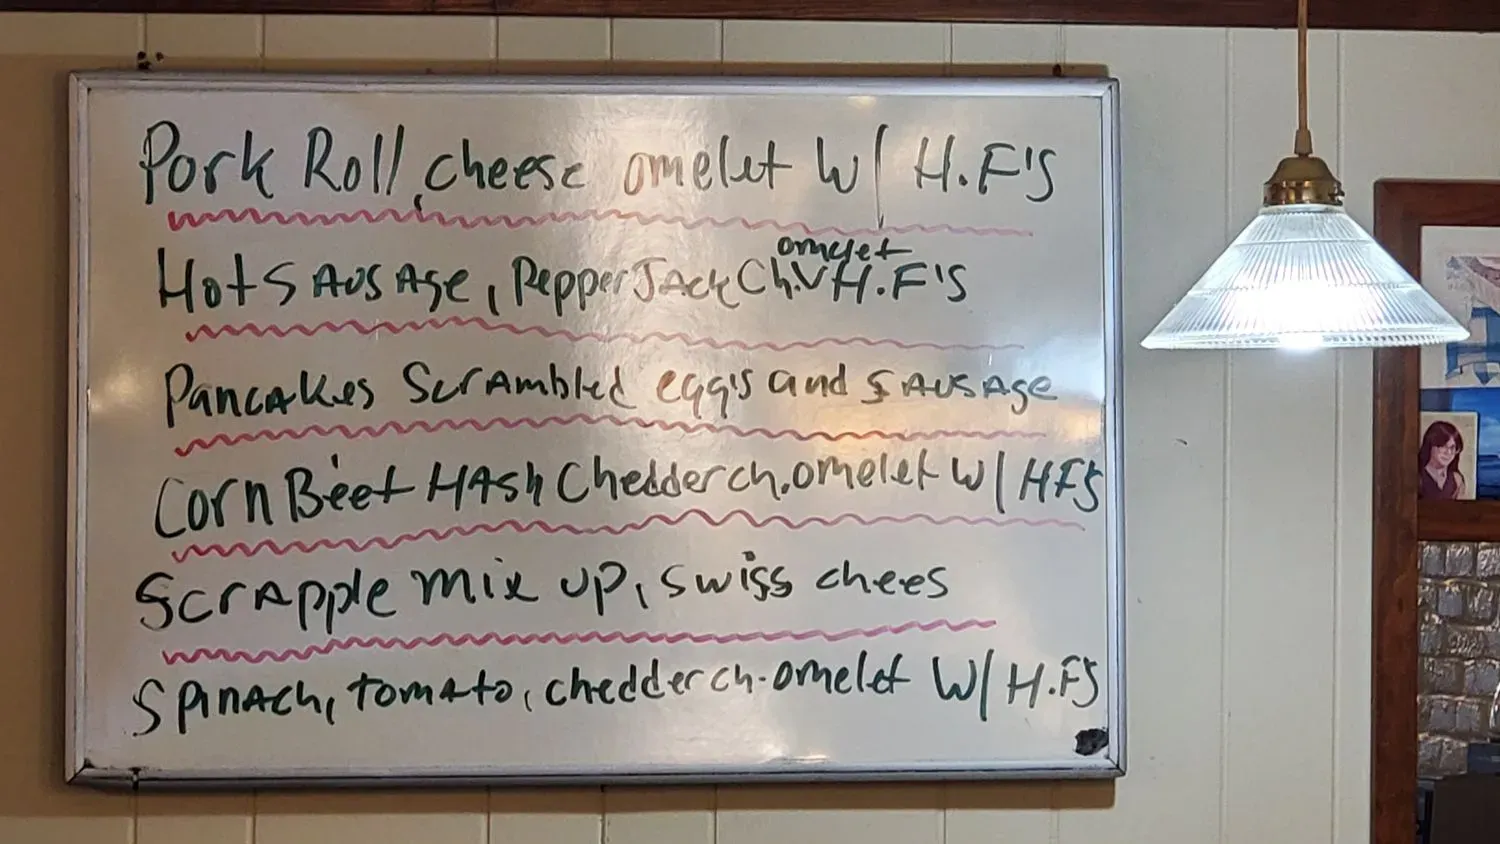 Pork Roll, cheese omelet W/ H.F'S
omelet
Hot SAUSAge, Pepper JAck Ch. H.F'S
PancAkes ScrAmbled egg's and SAUSAge
Corn Beef HAsh Chedder ch. omelet W/ HFS
ScrApple mix up, swiss chees
SpinAch, tomAto, chedder ch. omelet W/ H.FS